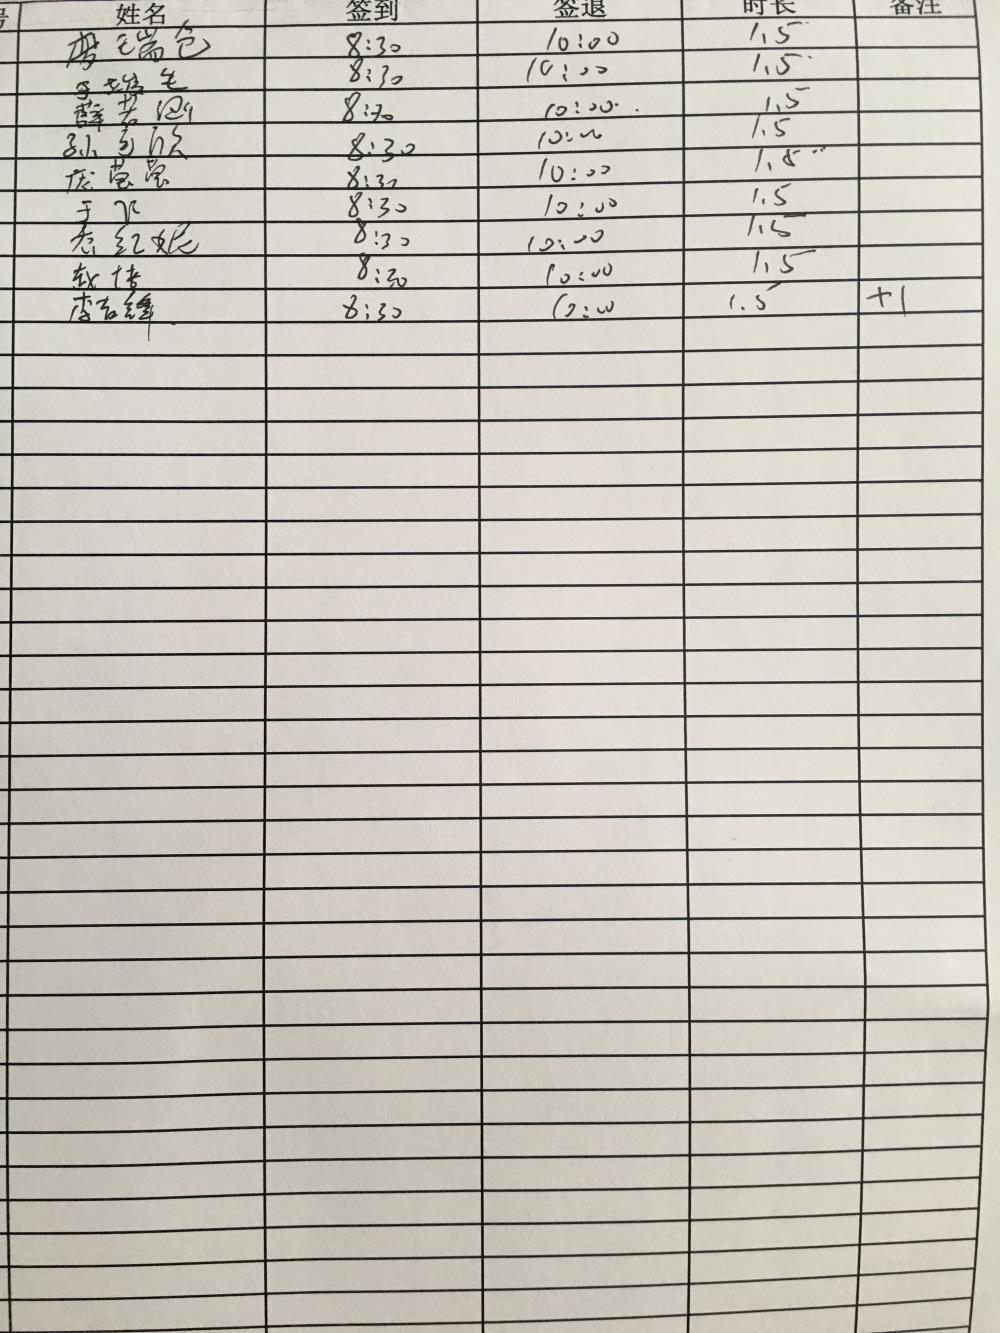 号 姓名 签到 签退 时长 备注
8:30 10:00 1.5
8:30 10:00 1.5
薛若 8:30 10:00 1.5
孙 欣 8:30 10:00 1.5
庞莹莹 8:30 10:00 1.5
于飞 8:30 10:00 1.5
红妮 8:30 10:00 1.5
赵倩 8:30 10:00 1.5
李吉锋 8:30 10:00 1.5 +1